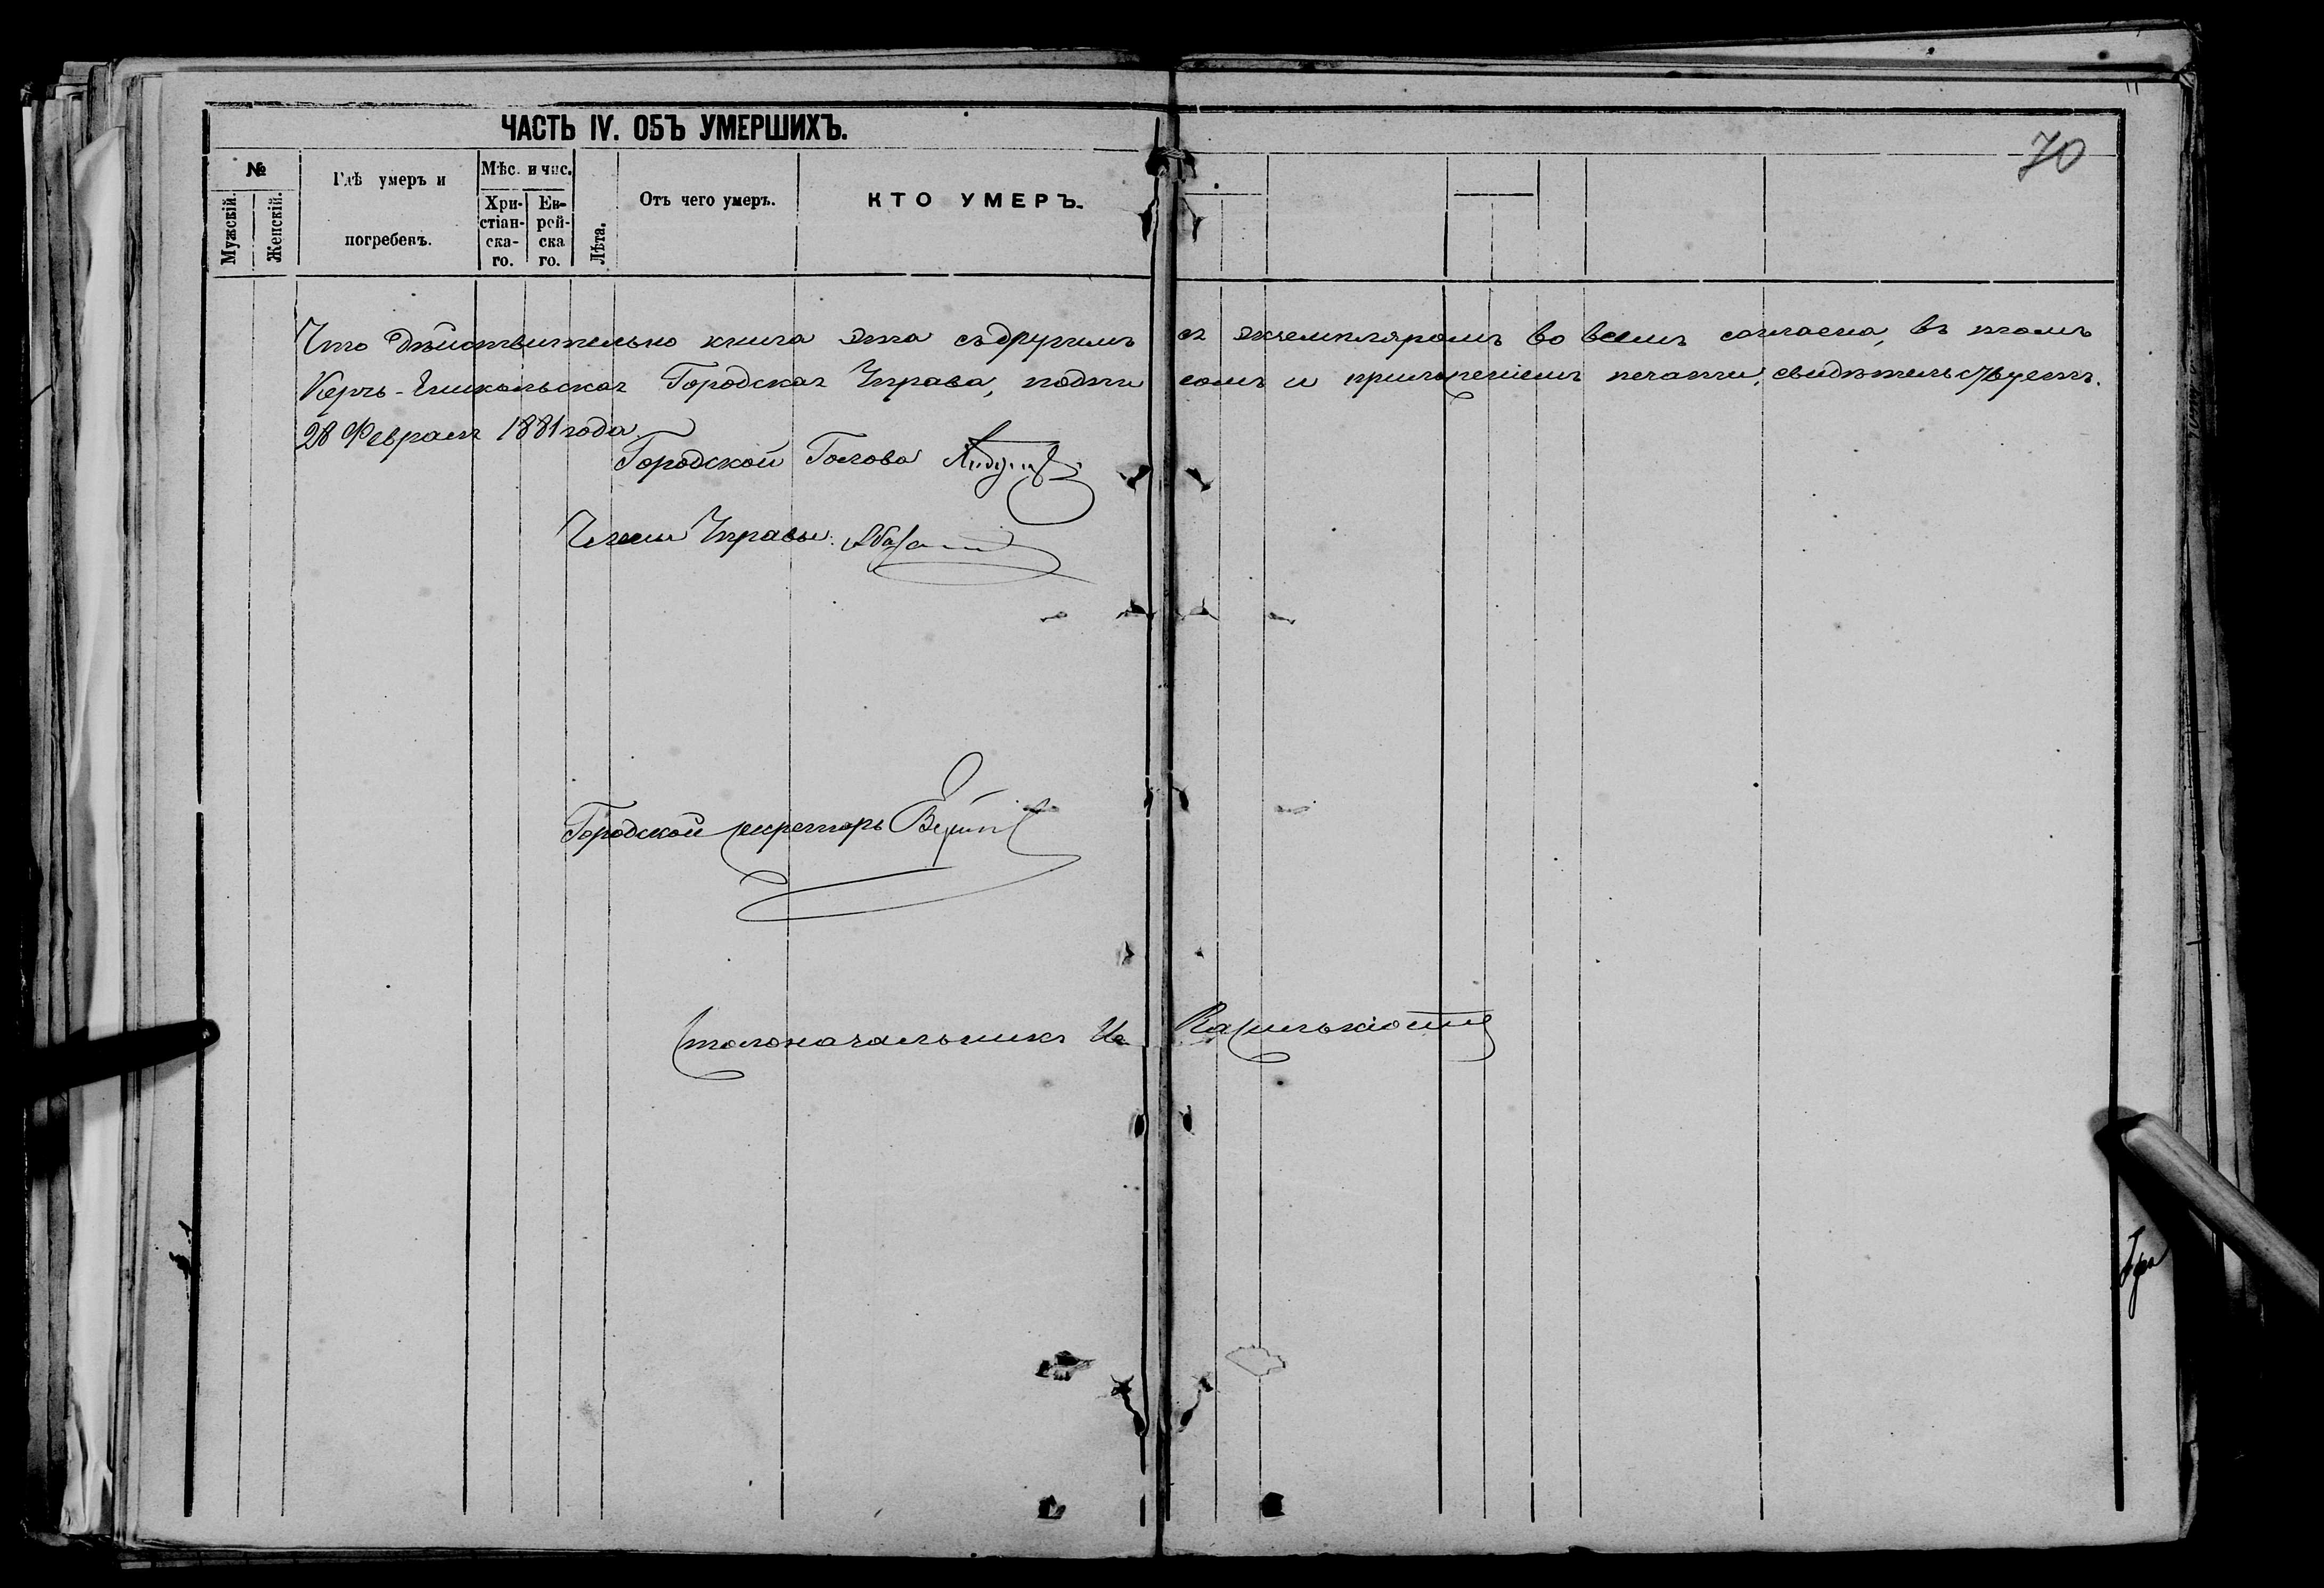 ЧАСТЬ IV. ОБЪ УМЕРШИХЪ.
70
№
Мужскій.
Женскій.
Гдѣ умеръ и
погребенъ.
Мѣс. и чис.
Хри-
стіан-
ска-
го.
Ев-
рей-
ска
го.
Лѣта.
Отъ чего умеръ.
КТО УМЕРЪ.
Что дѣйствительно книга эта съ другимъ экземпляромъ во всемъ согласна, въ томъ
Керчь-Еникольская Городская Управа, подписомъ и приложеніемъ печати, свидѣтельствуетъ.
28 Февраля 1881 года.
Городской Голова
Члены Управы:
Городской секретарь
Столоначальникъ